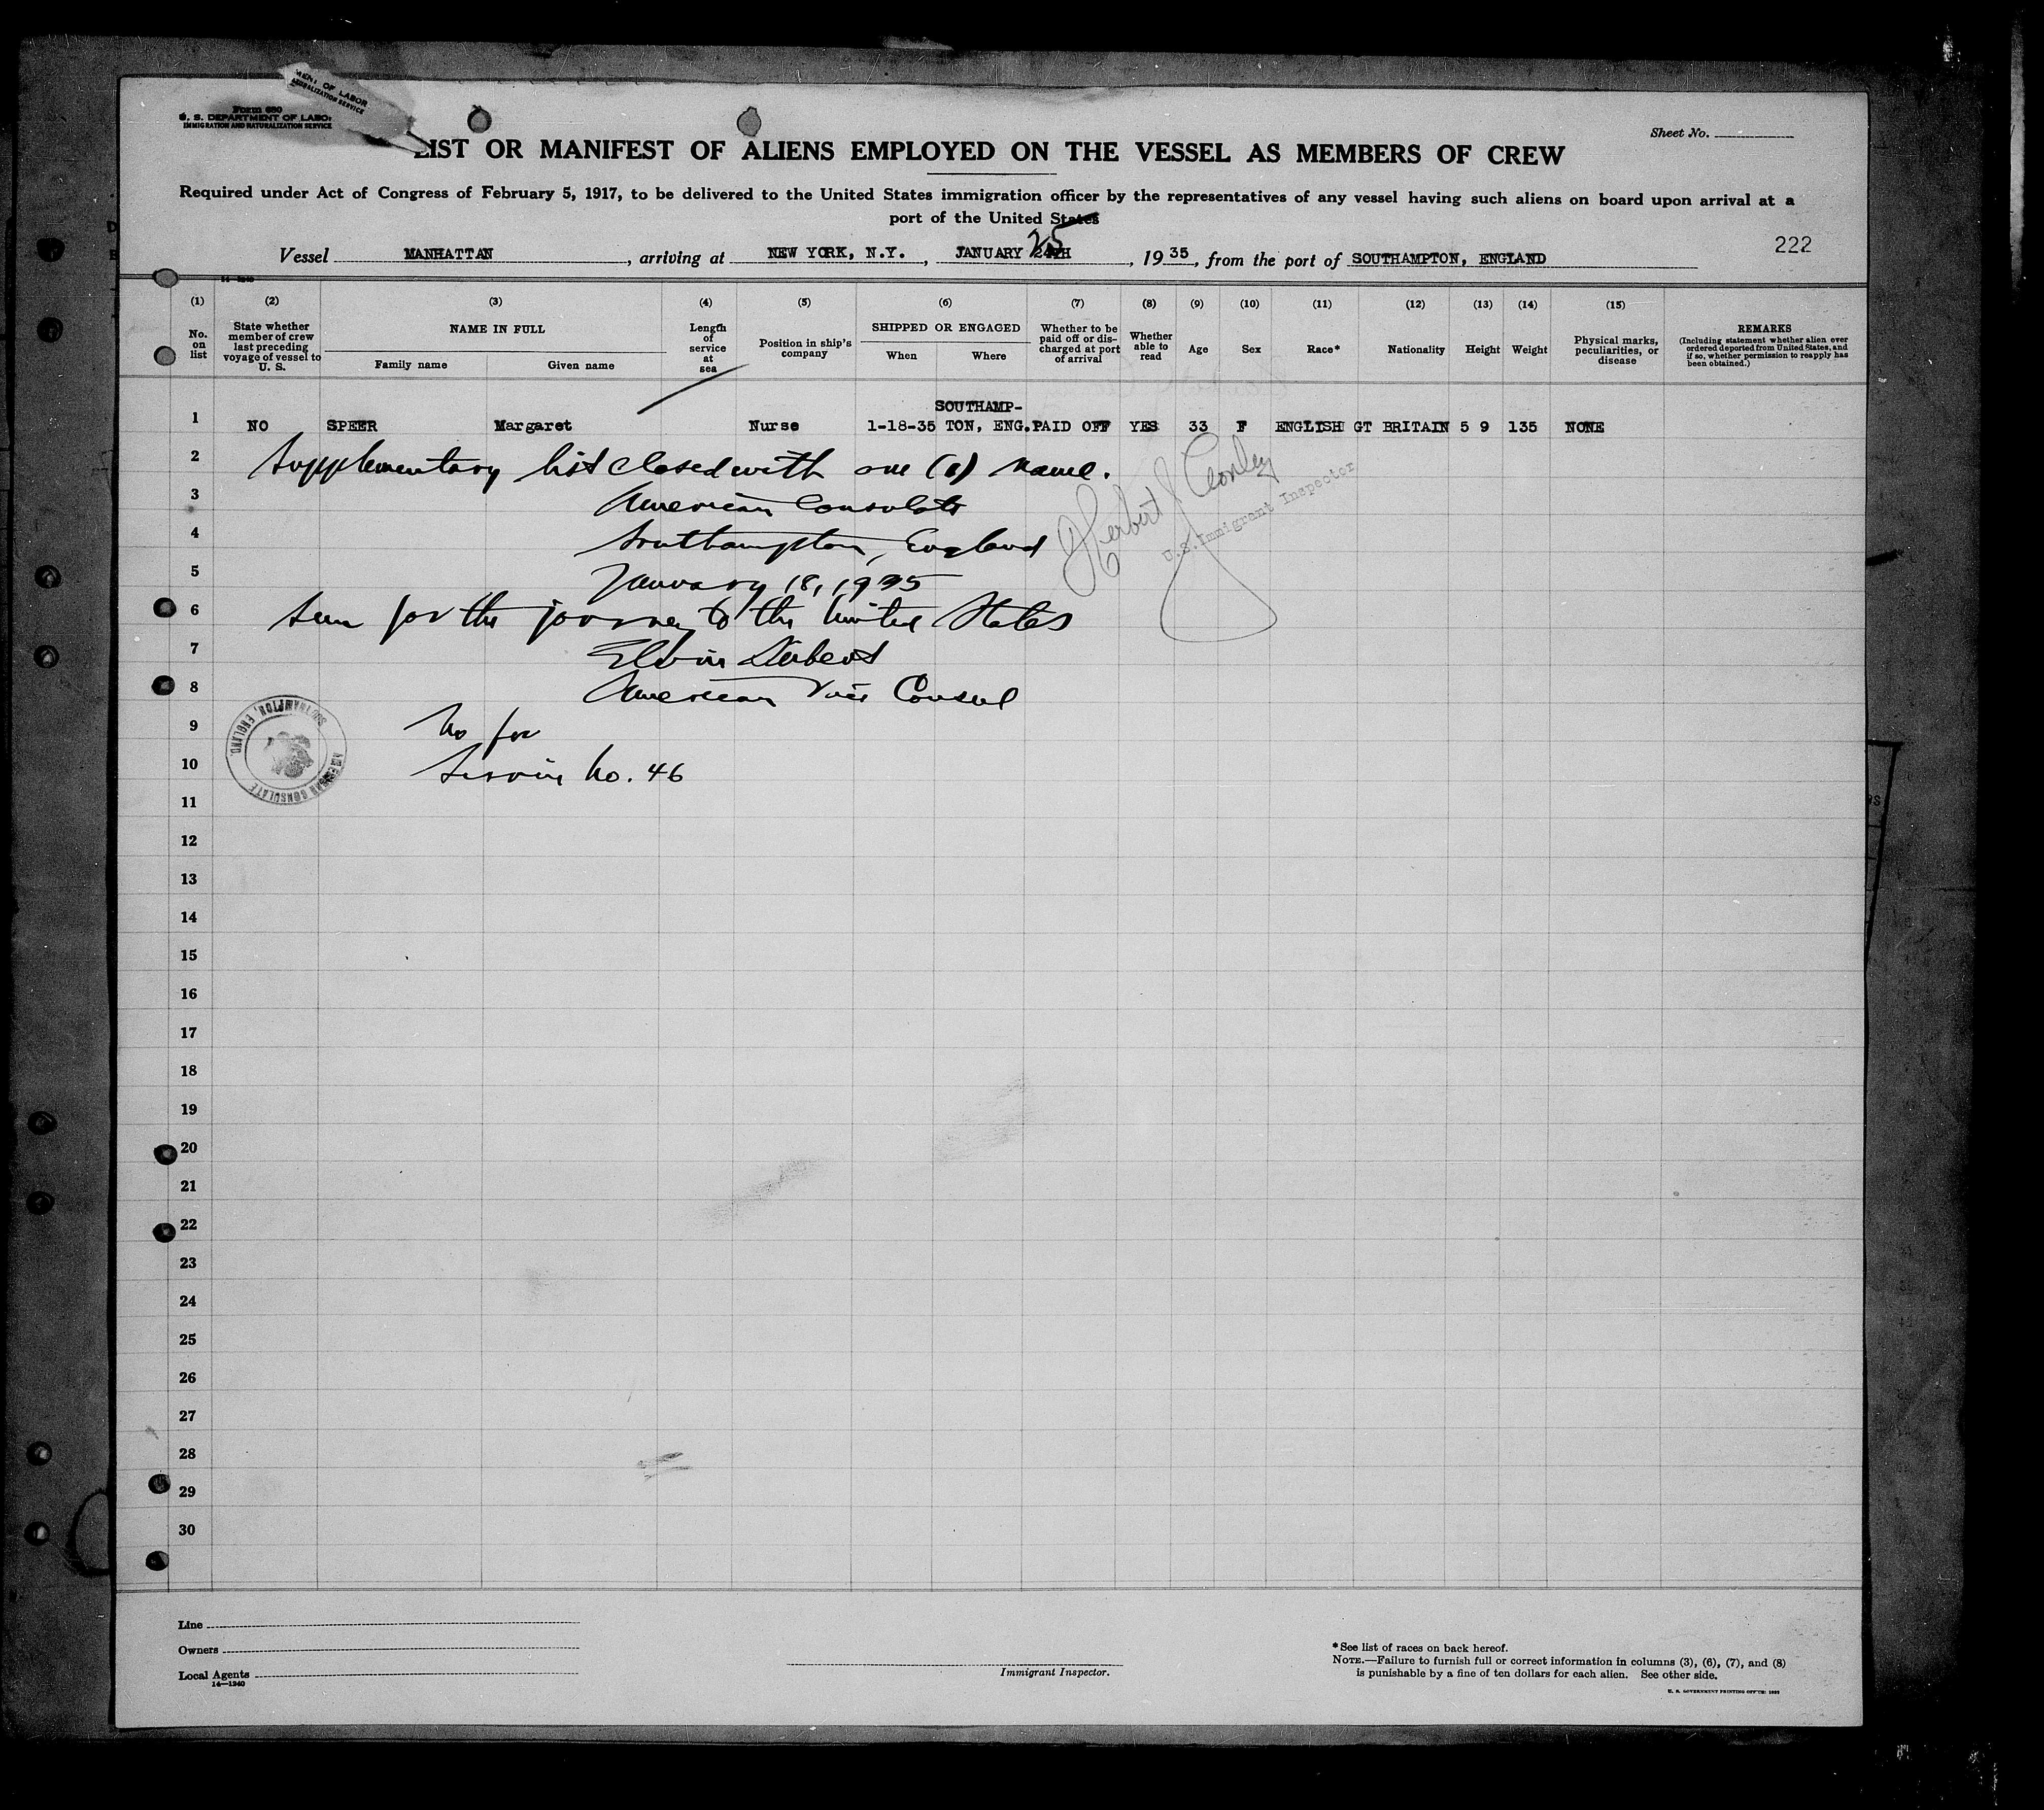 Form 680
U. S. DEPARTMENT OF LABOR
IMMIGRATION AND NATURALIZATION SERVICE
OF LABOR
Sheet No.
LIST OR MANIFEST OF ALIENS EMPLOYED ON THE VESSEL AS MEMBERS OF CREW
Required under Act of Congress of February 5, 1917, to be delivered to the United States immigration officer by the representatives of any vessel having such aliens on board upon arrival at a
port of the United States
Vessel MANHATTAN, arriving at NEW YORK, N.Y., JANUARY 25 24TH, 1935, from the port of SOUTHAMPTON, ENGLAND
222
(1) (2) (3) (4) (5) (6) (7) (8) (9) (10) (11) (12) (13) (14) (15)
No. on list
State whether member of crew last preceding voyage of vessel to U. S.
NAME IN FULL
Family name Given name
Length of service at sea
Position in ship's company
SHIPPED OR ENGAGED
When Where
Whether to be paid off or discharged at port of arrival
Whether able to read
Age
Sex
Race*
Nationality
Height
Weight
Physical marks, peculiarities, or disease
REMARKS
(Including statement whether alien ever ordered deported from United States, and if so, whether permission to reapply has been obtained.)
1 NO SPEER Margaret Nurse 1-18-35 SOUTHAMP-TON, ENG. PAID OFF YES 33 F ENGLISH GT BRITAIN 5 9 135 NONE
2 Supplementary list closed with one (1) name.
3 American Consulate
4 Southampton, England
5 January 18, 1935
6 Seen for the journey to the United States
7
8 American Vice Consul
9 No fee
10 Service No. 46
Herbert J
U.S. Immigrant Inspector
AMERICAN CONSULATE
SOUTHAMPTON, ENGLAND
11
12
13
14
15
16
17
18
19
20
21
22
23
24
25
26
27
28
29
30
Line
Owners
Local Agents
14—1240
Immigrant Inspector.
*See list of races on back hereof.
NOTE.—Failure to furnish full or correct information in columns (3), (6), (7), and (8)
is punishable by a fine of ten dollars for each alien. See other side.